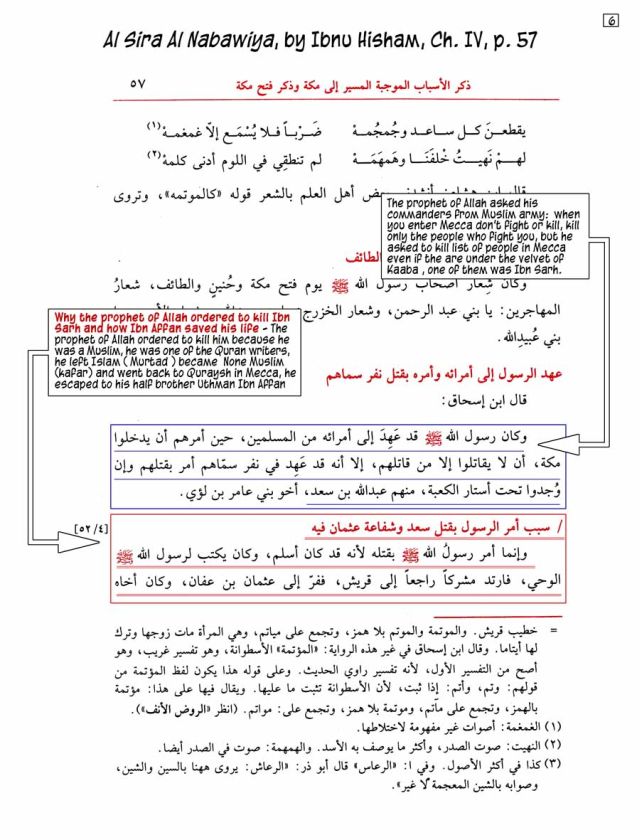 6
Al Sira Al Nabawiya, by Ibnu Hisham, Ch. IV, p. 57
ذكر الأسباب الموجبة المسير إلى مكة وذكر فتح مكة ٥٧
يقطعنَ كل ساعد وجُمجُمهْ ضَرْباً فلا يُسْمَع إلّا غمغمهْ (١)
لهمْ نَهيتُ خلْفَنَا وهَمهَمَهْ لم تنطقِي في اللوم أدنى كلمهْ (٢)
بعض أهل العلم بالشعر قوله «كالموتمه»، وتروى
The prophet of Allah asked his
commanders from Muslim army: when
you enter Mecca don't fight or kill, kill
only the people who fight you, but he
asked to kill list of people in Mecca
even if the are under the velvet of
Kaaba , one of them was Ibn Sarh.
والطائف
وكان شِعار أصحاب رسول الله ﷺ يوم فتح مكة وحُنينٍ والطائف، شعارُ
المهاجرين: يا بني عبد الرحمن، وشعار الخزرج
بني عُبيدِالله.
Why the prophet of Allah ordered to kill Ibn
Sarh and how Ibn Affan saved his life - The
prophet of Allah ordered to kill him because he
was a Muslim, he was one of the Quran writers,
he left Islam ( Murtad ) became None Muslim
(kafar) and went back to Quraysh in Mecca, he
escaped to his half brother Uthman Ibn Affan
عهد الرسول إلى أمرائه وأمره بقتل نفر سماهم
قال ابن إسحاق:
وكان رسول الله ﷺ قد عَهِدَ إلى أمرائه من المسلمين، حين أمرهم أن يدخلوا
مكة، أن لا يقاتلوا إلا من قاتلهم، إلا أنه قد عَهِد في نفر سمّاهم أمر بقتلهم وإن
وُجدوا تحت أستار الكعبة، منهم عبدالله بن سعد، أخو بني عامر بن لؤي.
[٥٢/٤]
/ سبب أمر الرسول بقتل سعد وشفاعة عثمان فيه
وإنما أمر رسولُ الله ﷺ بقتله لأنه قد كان أسلم، وكان يكتب لرسول الله ﷺ
الوحي، فارتد مشركاً راجعاً إلى قريش، ففرّ إلى عثمان بن عفان، وكان أخاه
= خطيب قريش. والموتمة والموتم بلا همز، وتجمع على مياتم، وهي المرأة مات زوجها وترك
لها أيتاما. وقال ابن إسحاق في غير هذه الرواية: «المؤتمة» الأسطوانة، وهو تفسير غريب، وهو
أصح من التفسير الأول، لأنه تفسير راوي الحديث. وعلى قوله هذا يكون لفظ المؤتمة من
قولهم: وتم، وأتم: إذا ثبت، لأن الأسطوانة تثبت ما عليها. ويقال فيها على هذا: مؤتمة
بالهمز، وتجمع على مآتم، وموتمة بلا همز، وتجمع على: مواتم. (انظر «الروض الأنف»).
(١) الغمغمة: أصوات غير مفهومة لاختلاطها.
(٢) النهيت: صوت الصدر، وأكثر ما يوصف به الأسد. والهمهمة: صوت في الصدر أيضا.
(٣) كذا في أكثر الأصول. وفي ا: «الرعاس» قال أبو ذر: «الرعاش: يروى ههنا بالسين والشين،
وصوابه بالشين المعجمة لا غير».